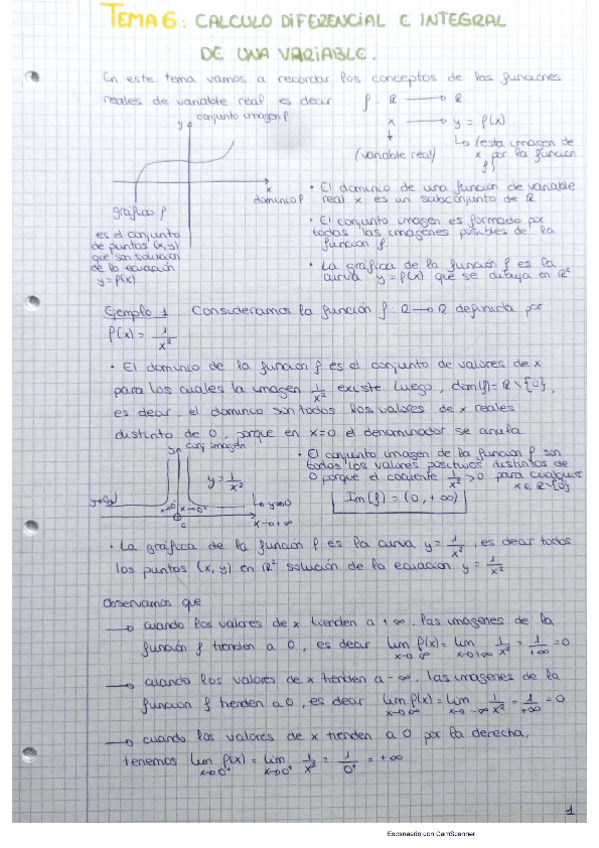 TEMA 6: CALCULO DIFERENCIAL E INTEGRAL
DE UNA VARIABLE.
En este tema vamos a recordar los conceptos de las funciones
reales de variable real es decir f: R → R
y conjunto imagen f
x → y = f(x)
(variable real)
↳ (esta imagen de
x por la función
f)
x
dominio f
gráfico f
es el conjunto
de puntos (x,y)
que son solución
de la ecuación
y=f(x)
• El dominio de una función de variable
real x es un subconjunto de R
• El conjunto imagen es formado por
todas las imágenes posibles de la
función f.
• La gráfica de la función f es la
curva y=f(x) que se dibuja en R²
Ejemplo 1 Consideramos la función f: R → R definida por
f(x) = 1/x²
• El dominio de la función f es el conjunto de valores de x
para los cuales la imagen 1/x² existe luego, dim(f)=R\{0},
es decir, el dominio son todos los valores de x reales
distinto de 0, porque en x=0 el denominador se anula
y conj imagen
y = 1/x²
y→0
x→0⁺
↳ y→0
x→+∞
• El conjunto imagen de la función f son
todos los valores positivos distintos de
0 porque el cociente 1/x² > 0 para cualquier
x ∈ R\{0}
Im(f) = (0, +∞)
• La gráfica de la función f es la curva y = 1/x², es decir todos
los puntos (x,y) en R² solución de la ecuación y = 1/x²
Observamos que
→ cuando los valores de x tienden a +∞. las imágenes de la
función f tienden a 0, es decir lim x→∞ f(x) = lim x→+∞ 1/x² = 1/+∞ = 0
→ cuando los valores de x tienden a -∞, las imágenes de la
función f tienden a 0, es decir lim x→∞ f(x) = lim x→-∞ 1/x² = 1/+∞ = 0
→ cuando los valores de x tienden a 0 por la derecha,
tenemos lim x→0⁺ f(x) = lim x→0⁺ 1/x² = 1/0⁺ = +∞
1
Escaneado con CamScanner